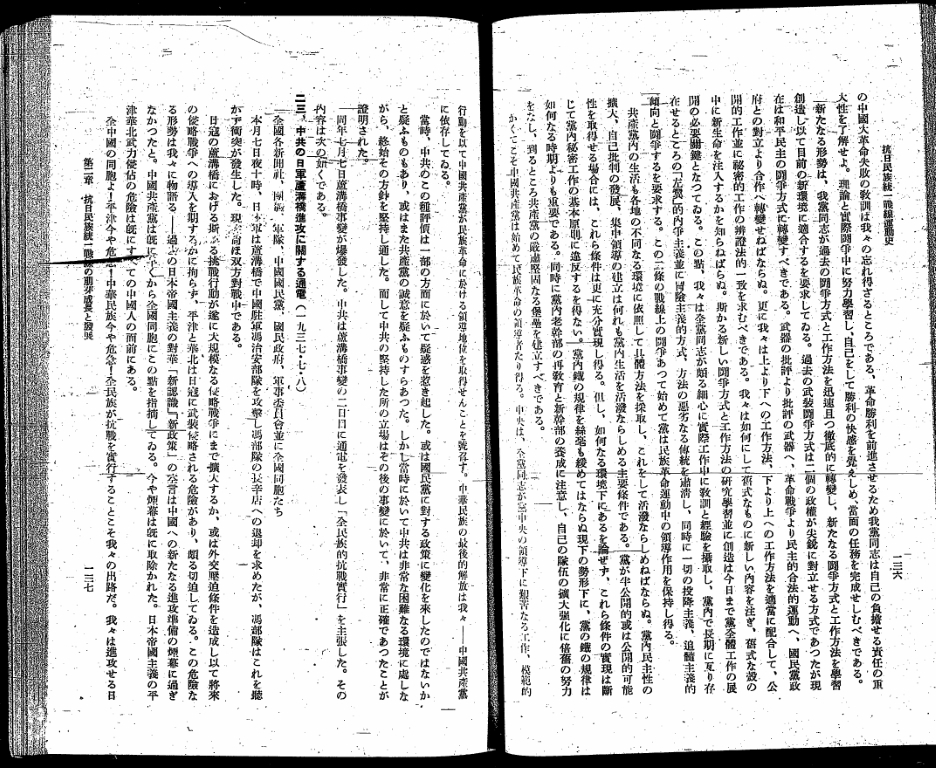 抗日民族統一戰線運動史
一三六
の中國大革命失敗の敎訓は我々の忘れ得ざるところである。革命勝利を前進させるため我黨同志は自己の負擔せる責任の重
大性を了解せよ。理論と實際鬪爭中に努力學習し、自己をして勝利の快感を覺えしめ、當面の任務を完成せしむべきである。
新たなる形勢は、我黨同志が過去の鬪爭方式と工作方法を迅速且つ徹底的に轉變し、新たなる鬪爭方式と工作方法を學習
創造し以て目前の新環境に適合するを要求してゐる。過去の武裝鬪爭方式は二個の政權が尖銳に對立せる方式であつたが現
在は和平民主の鬪爭方式に轉變すべきである。武器の批評より批評の武器へ、革命戰爭より民主的合法的運動へ、國民黨政
府との對立より合作へ轉變せねばならぬ。更に我々は上より下への工作方法、下より上への工作方法を適當に配合して、公
開的工作並に祕密的工作の辨證法的一致を求むべきである。我々は如何にして舊式なものに新しい內容を注ぎ、舊式な殼の
中に新生命を注入するかを知らねばならぬ。斯かる新しい鬪爭方式と工作方法の研究學習並に創造は今日まで黨全體工作の展
開の必要關鍵となつてゐる。この點、我々は全黨同志が頗る細心に實際工作中に敎訓と經驗を攝取し、黨內で長期に亙り存
在せるところの「左」的內爭主義並に冒險主義的方式、方法の惡劣なる傳統を肅淸し、同時に一切の投降主義、追隨主義的
傾向と鬪爭するを要求する。この二條の戰線上の鬪爭あつて始めて黨は民族革命運動中の領導作用を保持し得る。
共產黨內の生活も各地の不同なる環境に依照して具體方法を採取し、これをして活潑ならしめねばならぬ。黨內民主性の
擴大、自己批判の發展、集中領導の建立は何れも黨內生活を活潑ならしめる主要條件である。黨が半公開的或は公開的可能
性を取得せる場合には、これら條件は更に充分實現し得る。但し、如何なる環境下にあるを論ぜず、これら條件の實現は斷
じて黨內祕密工作の基本原則に違反するを得ない。黨內鐵の規律を絲毫も緩めてはならぬ現下の勢形下に、黨の鐵の規律は
如何なる時期よりも重要である。同時に黨內老幹部の再敎育と新幹部の養成に注意し、自己の隊伍の擴大强化に倍舊の努力
をなし、到るところ共產黨の嚴肅堅固なる堡壘を建立すべきである。
かくてこそ中國共產黨は始めて民族革命の領導者たり得る。中央は、全黨同志が黨中央の領導下に艱苦なる工作、模範的
行動を以て中國共產黨が民族革命に於ける領導地位を取得せんことを號召す。中華民族の最後的解放は我々——中國共產黨
に依存してゐる。
當時、中共のこの粗評價は一部の方面に於いて疑惑を惹き起した。或は國民黨に對する政策に變化を來したのではないか
と疑ふものもあり、或はまた共產黨の誠意を疑ふものすらあつた。しかし當時に於いて中共は非常な困難なる環境に處しな
がら、終始その方針を堅持し通した。而して中共の堅持した所の立場はその後の事變に於いて、非常に正確であつたことが
證明された。
同年七月七日蘆溝橋事變が爆發した。中共は蘆溝橋事變の二日目に通電を發表し「全民族的抗戰實行」を主張した。その
內容は次の如くである。
二三、中共の日軍蘆溝橋進攻に關する通電（一九三七・七・八）
全國各新聞社、團體、軍隊、中國國民黨、國民政府、軍事委員會並に全國同胞たち
本月七日夜十時、日本軍は蘆溝橋で中國駐軍馮治安部隊を攻擊し馮部隊の長辛店への退却を求めたが、馮部隊はこれを聽
かず衝突が發生した。現在尙ほ双方對戰中である。
日寇の蘆溝橋における斯かる挑戰行動が遂に大規模なる侵略戰爭にまで擴大するか、或は外交壓迫條件を造成し以て將來
の侵略戰爭への導入を期するかに拘らず、平津と華北は日寇に武裝侵略される危險があり、頗る切迫してゐる。この危險な
る形勢は我々に物語る——過去の日本帝國主義の對華「新認識」「新政策」の空言は中國への新たなる進攻準備の煙幕に過ぎ
なかつたと。中國共產黨は旣に早くから全國同胞にこの點を指摘してゐる。今や煙幕は旣に取除かれた。日本帝國主義の平
津華北武力侵佔の危險は旣にすべての中國人の面前にある。
全中國の同胞よ！平津今や危急！中華民族今や危急！全民族が抗戰を實行することこそ我々の出路だ。我々は進攻せる日
第二章　抗日民族統一戰線の萌芽成長と發展
一三七